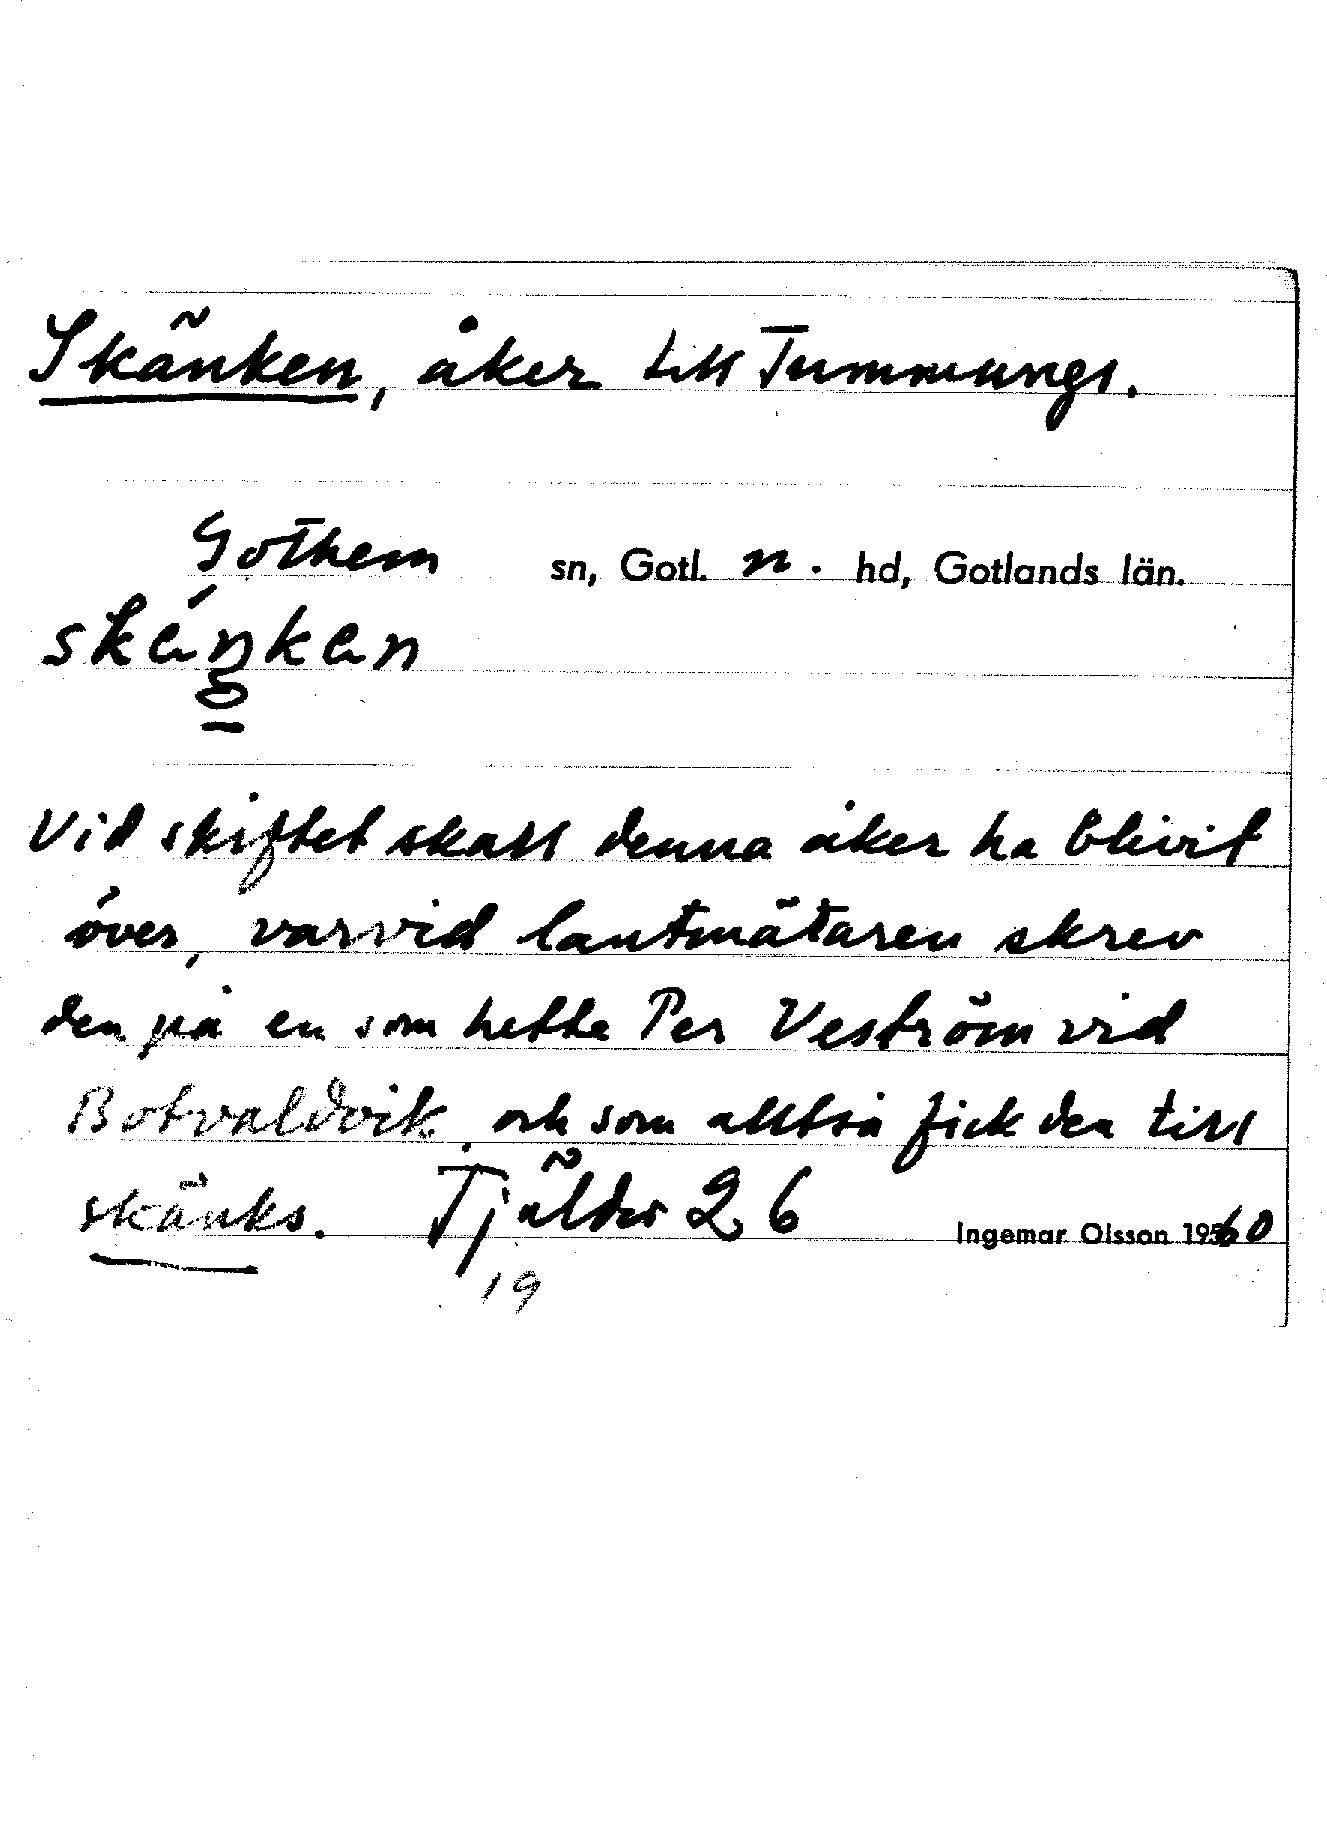 Skänken, åker till Tummungs.
Gothem sn, Gotl. n. hd, Gotlands län.
skäŋkan
Vid skiftet skall denna åker ha blivit
över, varvid lantmätaren skrev
den på en som hette Per Veström vid
Botvaldvik och som alltså fick den till
skänks. Tjälder 26 Ingemar Olsson 1960
19